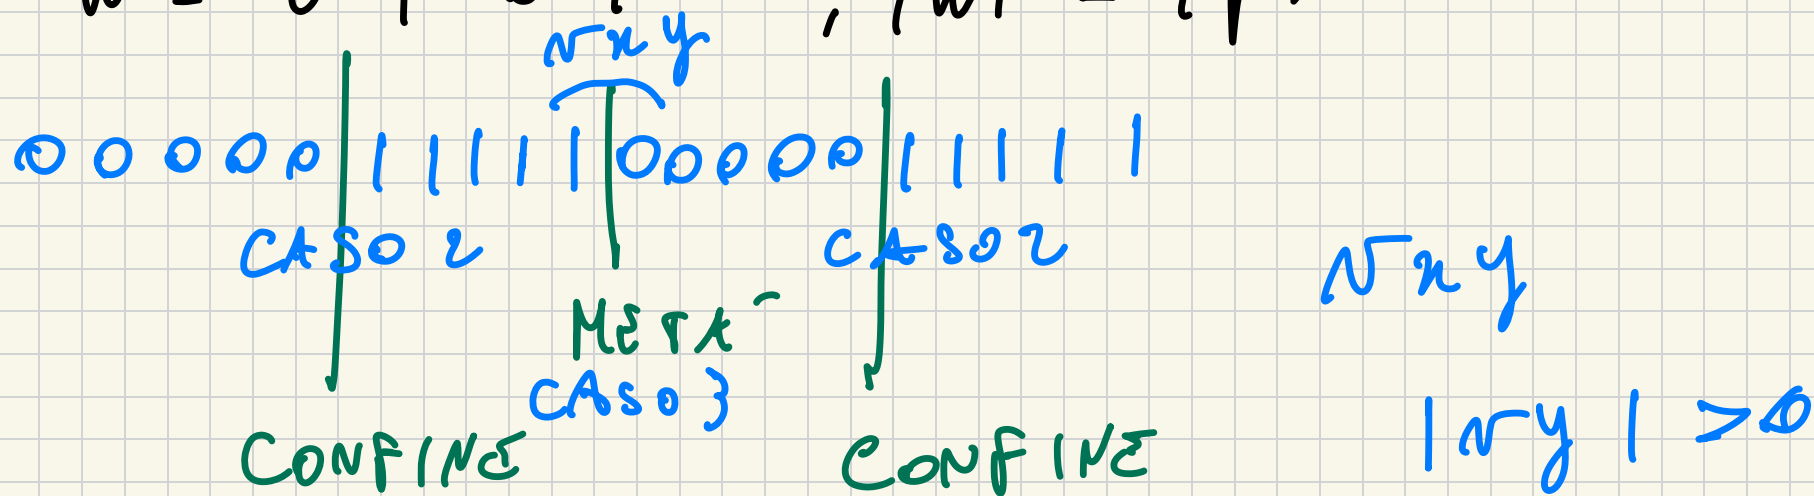 vxy
00000111110000011111
CASO 2 CASO 2
vxy
METÀ
CASO 3
|vy| >0
CONFINE CONFINE